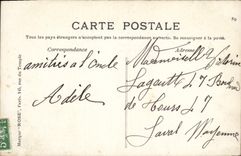 89
CARTE POSTALE
Tous les pays étrangers n'acceptent pas la correspondance au recto. Se renseigner à la poste.
Correspondance
Adresse
amitiés à l'oncle
Adèle
Mademoiselle
47
de Tours 47
Laval Mayenne
Marque "ROSE", Paris, 146, rue du Temple